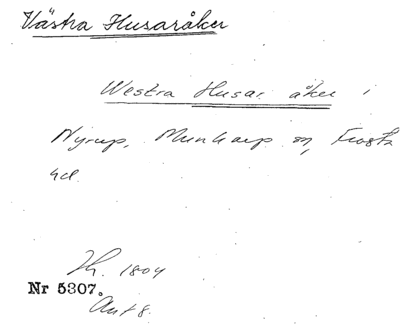 Västra Husaråker
Westra Husar åker i
Nyrup, Munkarp sn, Frosta
hd.
Sk. 1804
Nr 5307.
Akt 8.